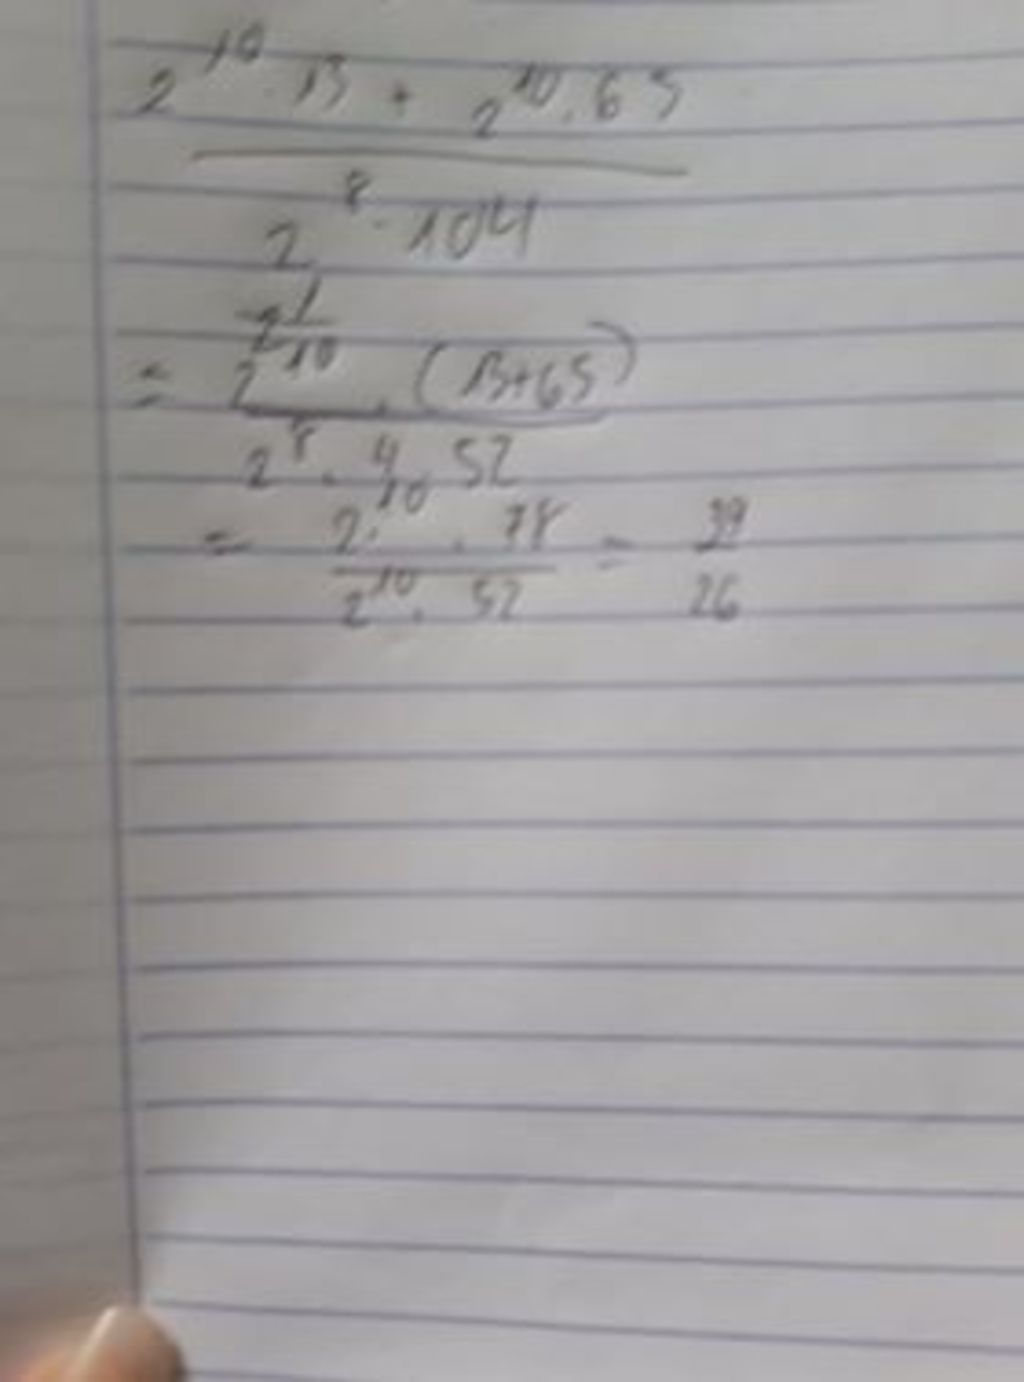 2^10 . 13 + 2^10 . 65
2^8 . 104
= 2^10 . (13+65)
2^8 . 4 . 52
= 2^10 . 78 = 39
2^10 . 52 26